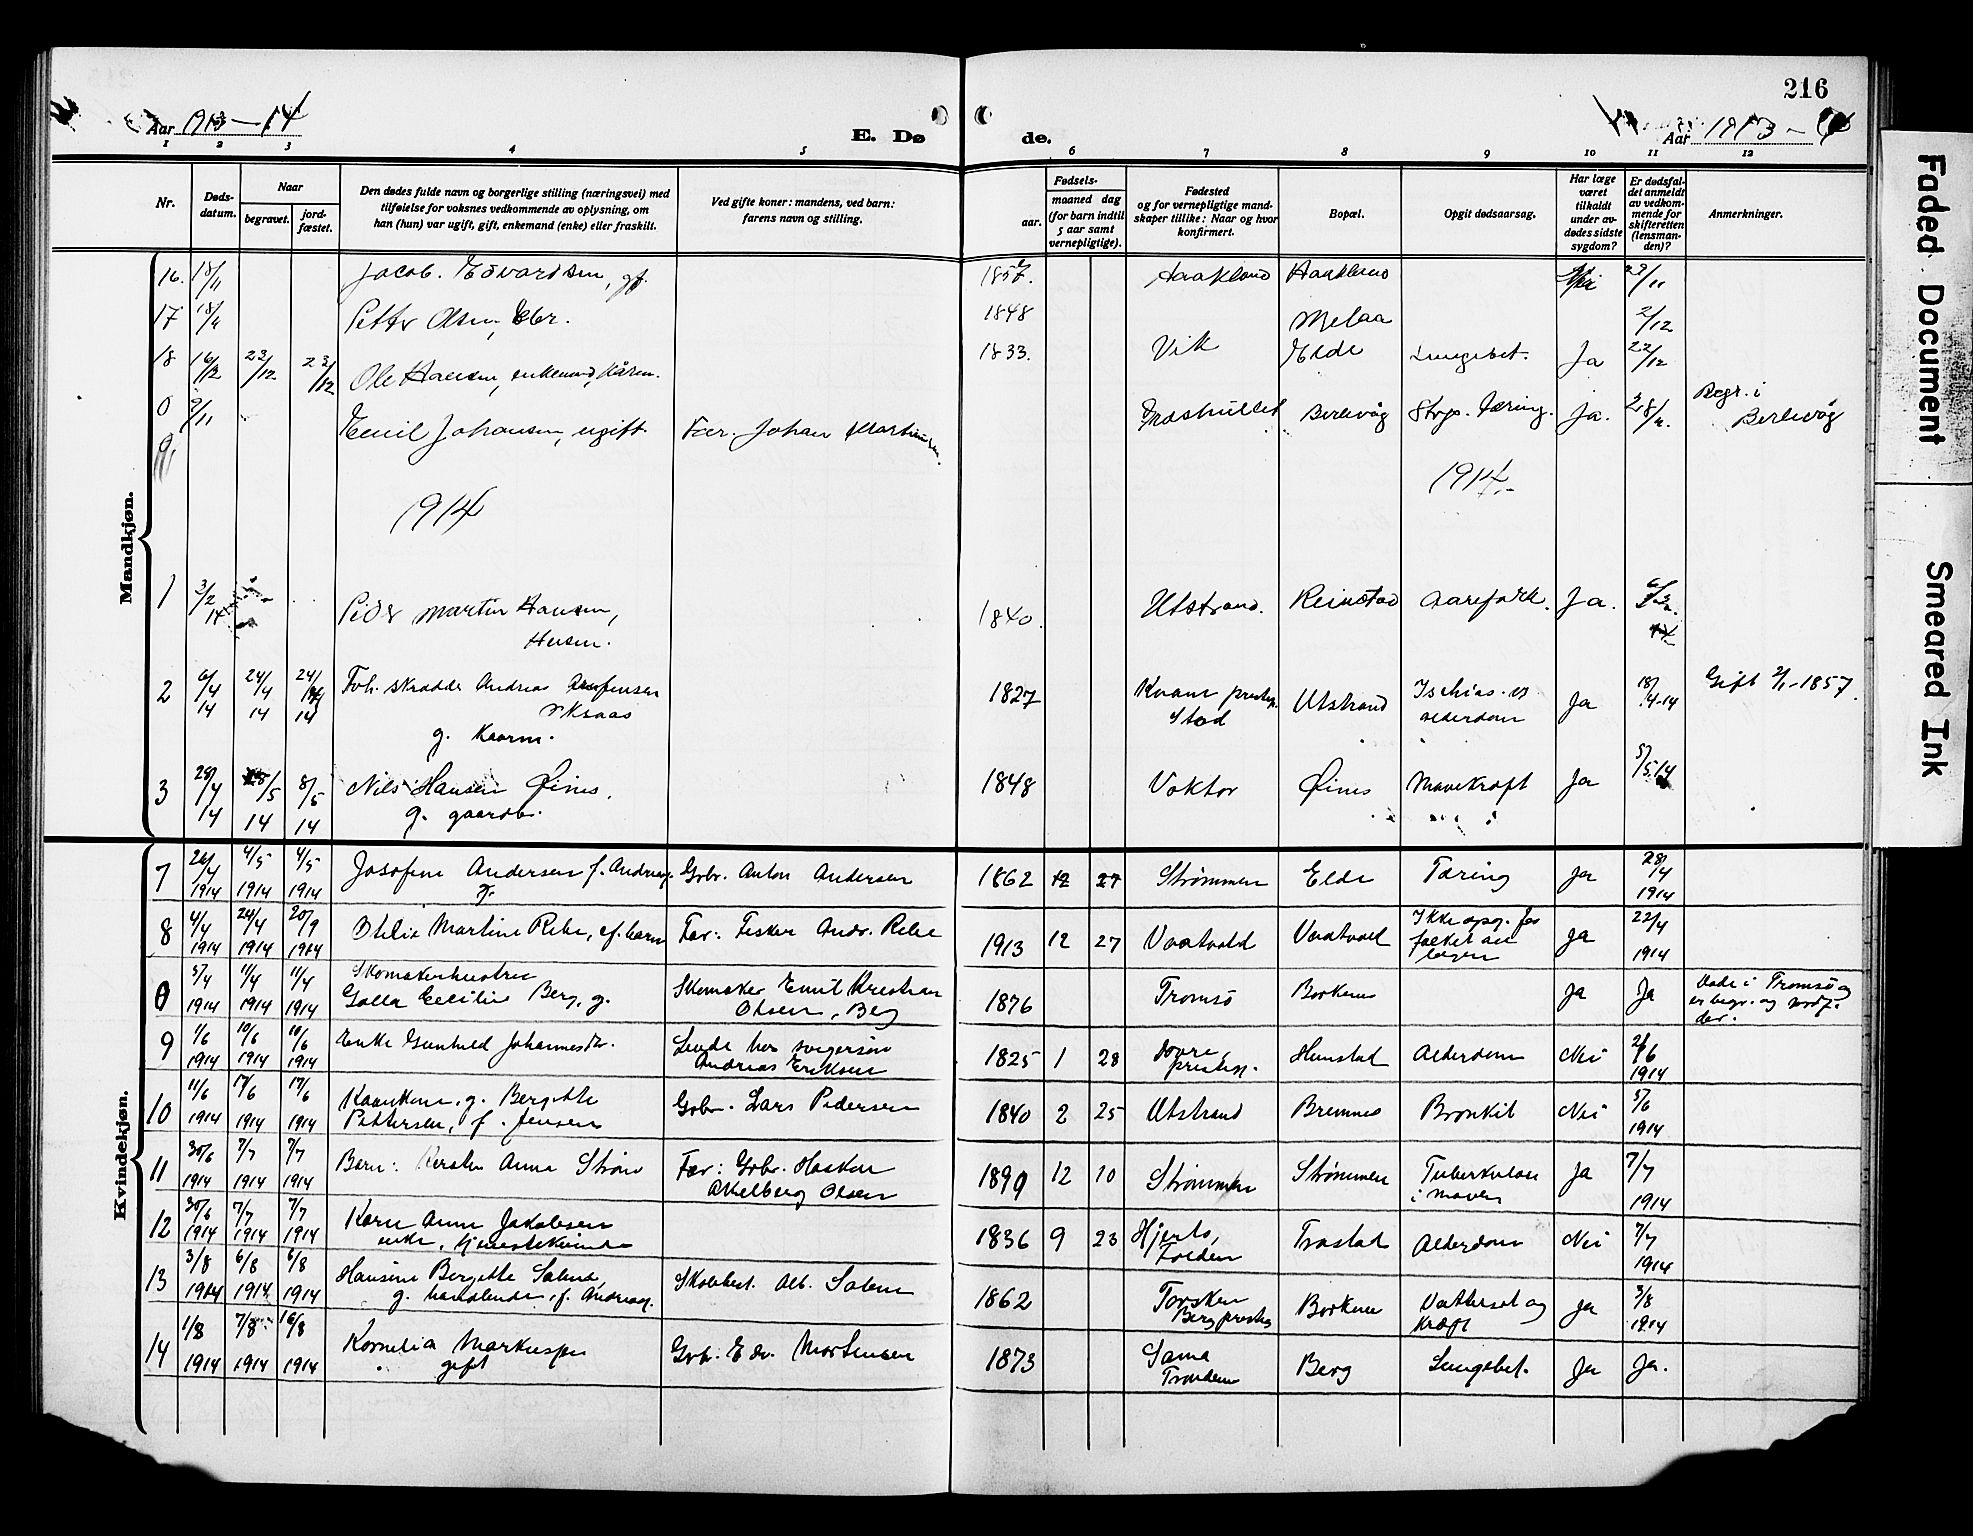 216
Aar 1913-14
E. Dø
de.
Aar 1913-
1 2 3 4 5 6 7 8 9 10 11 12
Nr.
Døds-datum.
Naar
begravet.
jord-fæstet.
Den dødes fulde navn og borgerlige stilling (næringsvei) med
tilføielse for voksnes vedkommende av oplysning, om
han (hun) var ugift, gift, enkemand (enke) eller fraskilt.
Ved gifte koner: mandens, ved barn:
farens navn og stilling.
Fødsels-
aar.
maaned dag
(for barn indtil
5 aar samt
vernepligtige).
Fødested
og for vernepligtige mand-
skaper tillike: Naar og hvor
konfirmert.
Bopæl.
Opgit dødsaarsag.
Har læge
været
tilkaldt
under av-
dødes sidste
sygdom?
Er dødsfal-
det anmeldt
av vedkom-
mende for
skifteretten
(lensman-
den)?
Anmerkninger.
Mandkjøn.
16. 18/11 Jacob. Edvardsen, gf. 1857. Haakland 29/11
17 Petter Olsen, 1848 Melaa 2/12
18 16/12 23/12 23/12 Ole Hansen, enkemand, 1833. Vik Elde Lungebet. Ja 22/12
0 9/11 Emil Johansen, ugift Far. Johan Berlevåg Strp. tæring. Ja. Begr. i
Berlevåg
1914
1914.-
1 3/2 14 Peder Martin Hansen, 1840. Utstrand. Reinstad Ja.
2 6/4 14 24/4 14 24/4 14 Foh. skrædder Andreas 1827 Kvam prestegj. Utstrand Ischias og Ja 18/4-14 Gift 2/1-1857.
Stod alderdom
g.
3 28/4 14 8/5 14 8/5 14 Nils Hansen Øines. 1848 Voktor Øines Mavekræft Ja 5/5.14
g. gaardb.
Kvindekjøn.
7 26/4 1914 4/5 1914 4/5 1914 Josefine Andersen f. Andreas. Grbr. Anton Andersen 1862 12 27 Strømmen Elde Tæring Ja 28/4 1914
g.
8 4/4 1914 24/4 1914 20/9 1914 Otelie Martine Rebe, Far: Fisker Andr. Rebe 1913 12 27 Vaatvold Vaatvold Ikke opg. for Ja 22/4 1914
0 5/4 1914 11/4 1914 11/4 1914 Skomakerhustru
Galla Cecilie Berg, g. Skomaker Emil Kristian
Olsen, Berg 1876 Tromsø Borkenes Ja Ja Døde i Tromsø og
er begr. og jordf.
der.
9 1/6 1914 10/6 1914 10/6 1914 Enke Gunhild Johannesdtr. Levde hos svigersøn
Andreas Eriksen 1825 1 28 Dovre,
prestegj. Hunstad Alderdom Nei 2/6 1914
10 11/6 1914 17/6 1914 17/6 1914 g. Bergitte
Pettersen, f. Jensen Grbr. Lars Pedersen 1840 2 25 Utstrand Bremnes Bronkit Nei 5/6 1914
11 30/6 1914 7/7 1914 7/7 1914 Barn: Kersten Anna Strøm Far: Grbr. Haakon
Akelberg Olsen 1899 12 10 Strømmen Strømmen Tuberkulose
i maven Ja 7/7 1914
12 30/6 1914 7/7 1914 7/7 1914 Karen Anna Jakobsen
enke, tjenestekvinde 1836 9 23 Folden Trastad Alderdom Nei 7/7 1914
13 3/8 1914 6/8 1914 6/8 1914 Hansine Bergitte Salen,
g. handlende, f. Andreas. Skolebest. Alb. Salen 1862 Torsken
Berg prestegj. Borkenes Vattersot og
kræft Ja 3/8 1914
14 1/8 1914 7/8 1914 16/8 1914 Kornelia Markussen
gift Grbr. Edv. Mortensen 1873 Sama
Trondenes Berg Lungebet. Ja Ja.
Faded Document
Smeared Ink